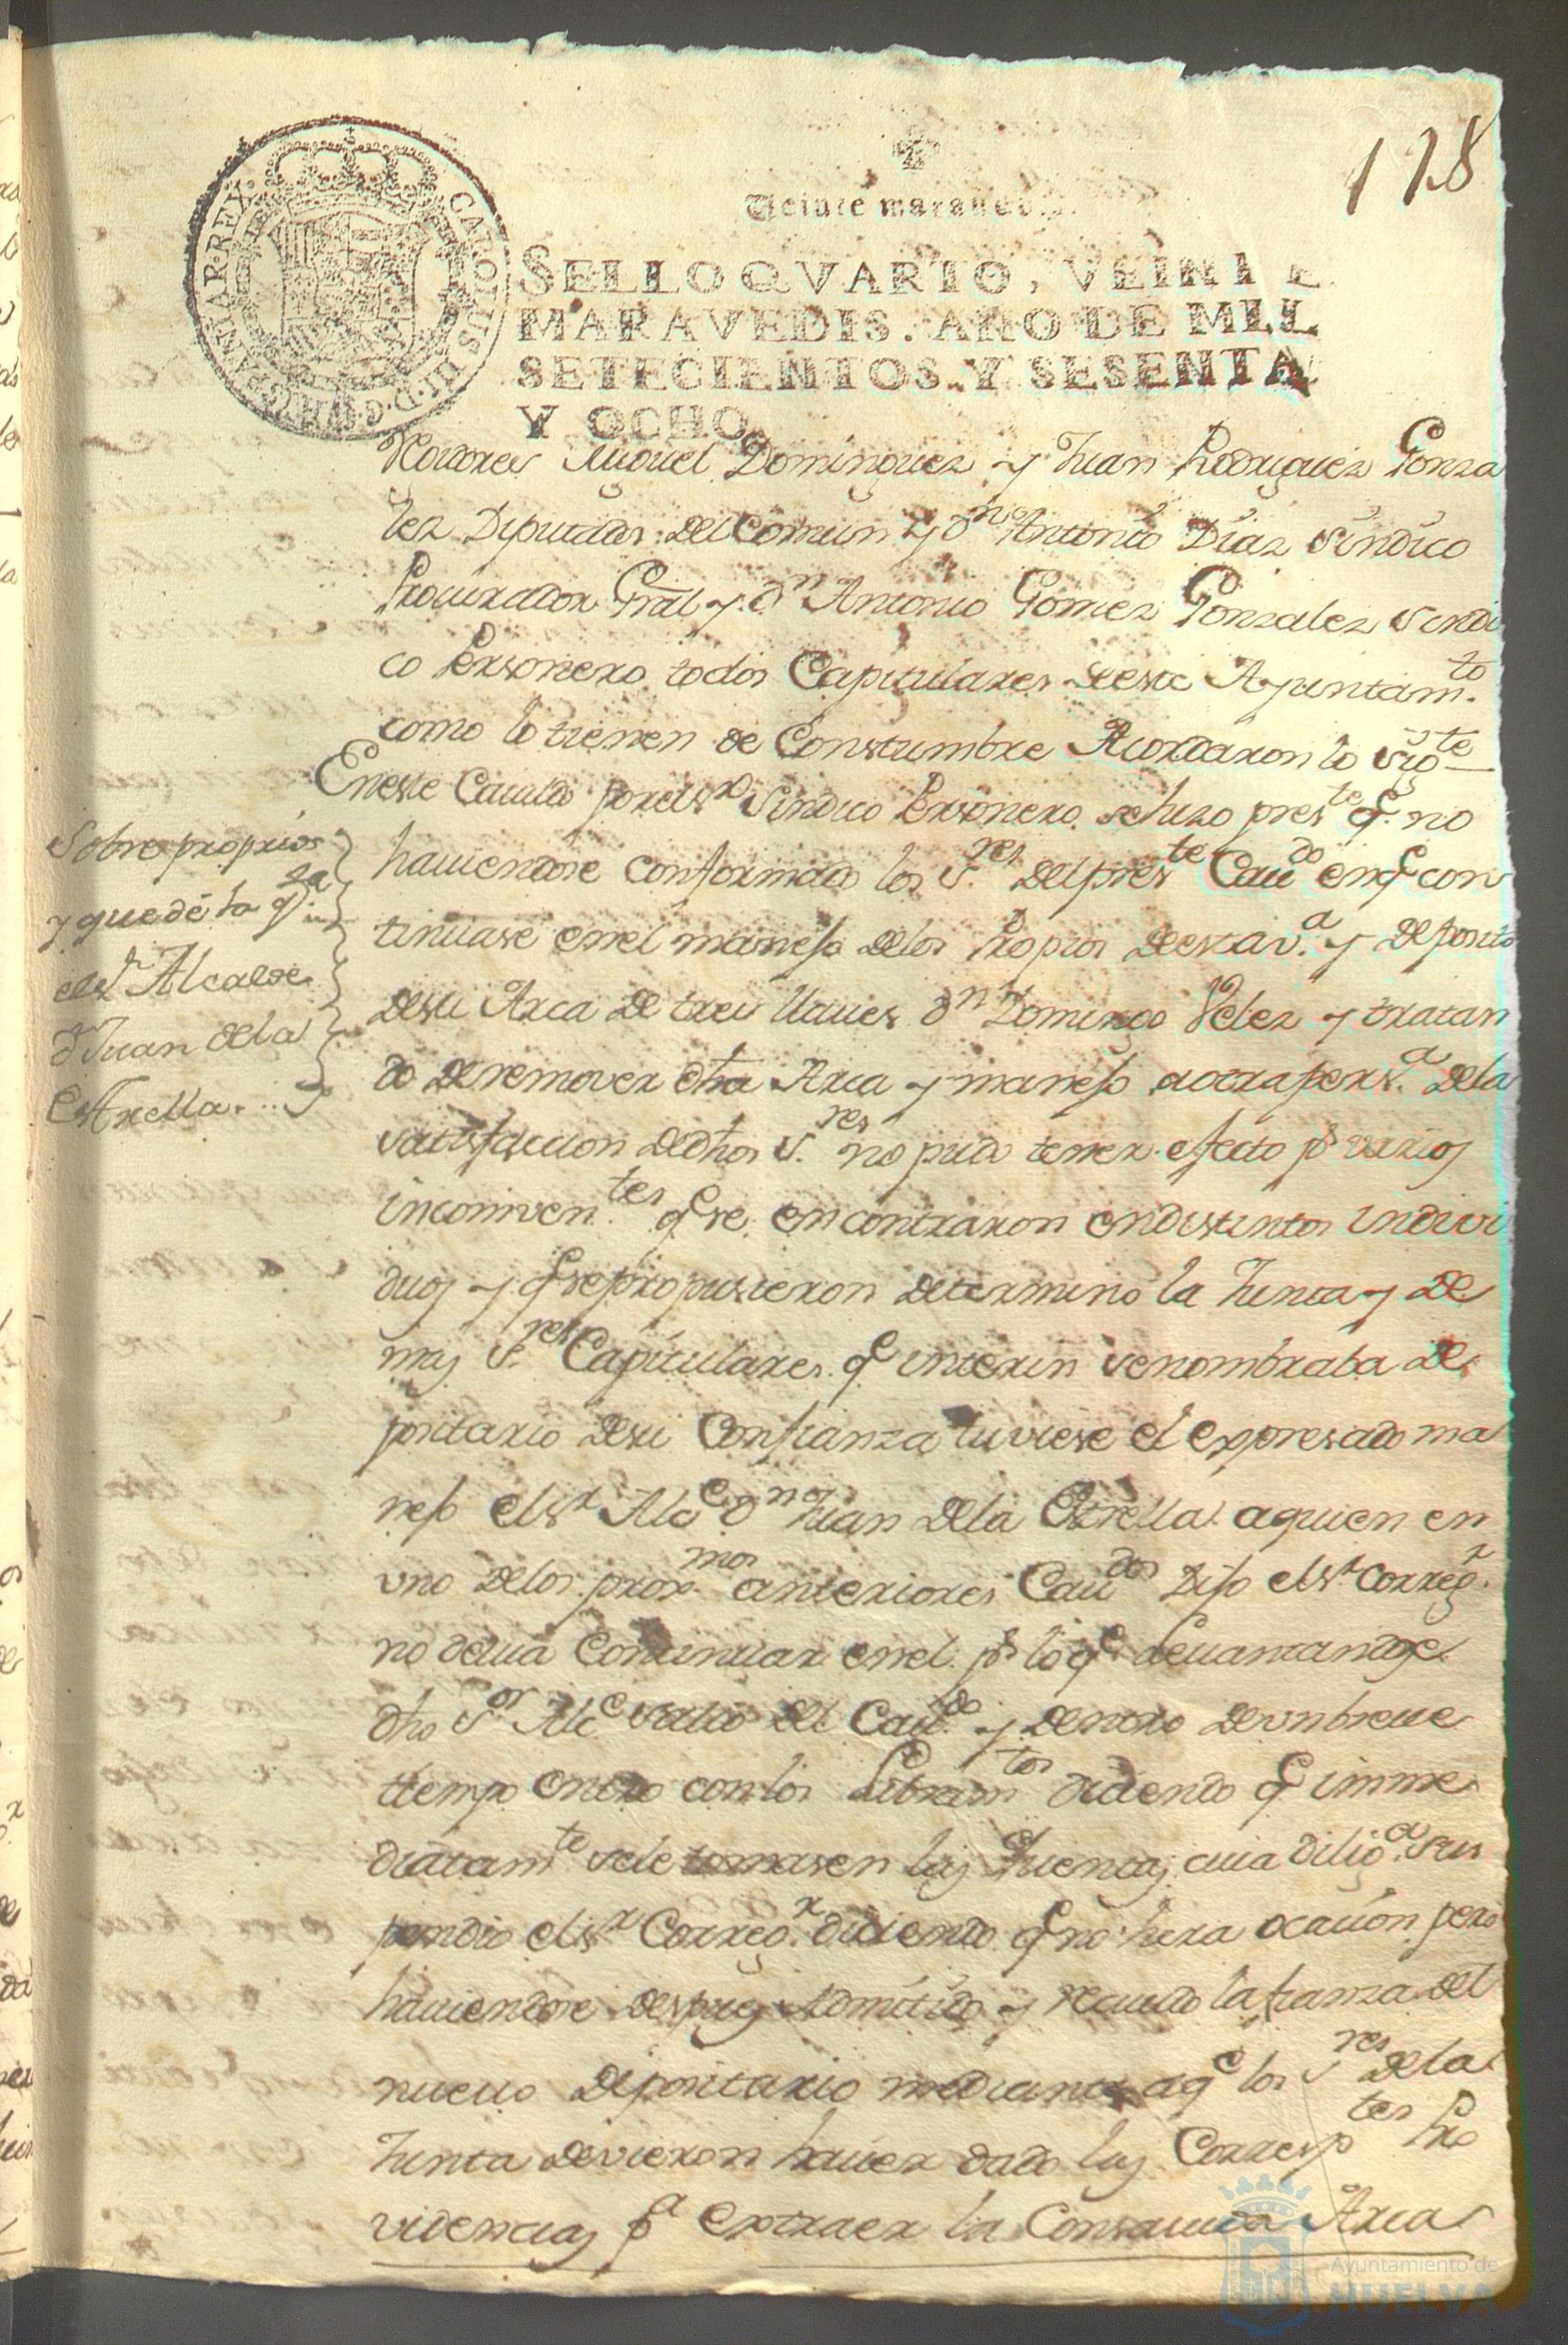 128
Veinte maravedis.
SELLO QVARTO, VEINTE
MARAVEDIS. AÑO DE MIL
SETECIENTOS Y SESENTA
Y OCHO.
CAROLUS III D.G. HISPANIAR. REX.
Miguel Dominguez y Juan Rodriguez Gonza
lez Diputados del Comun y dn Antonio Diaz Sindico
Procurador Gral y dn Antonio Gomez Gonzalez Sindi
co Personero todos Capitulares de este Ayuntamto
como lo tienen de Constumbre Acordaron lo sigte
En este Cavildo por el sr Sindico Personero se hizo preste qe no
haviendose conformado los Sres del preste Cavdo en qe con
tinuase en el manejo de los Propios de esta va y deposito
de su Arca de tres llaves dn Domingo Velez y tratan
do de remover dha Arca y manejo a otra persa de la
satisfaccion de dhos Sres no pudo tener efecto pr varios
inconventes qe se encontraron en distintos indivi
duos y qe se propusieron determino la Junta y de
mas Sres Capitulares qe interin se nombraba de
positario de su Confianza tuviese el expresado ma
nejo el sr Alce dn Juan de la Estrella a quien en
uno de los proxmos anteriores Cavdos dijo el sr Corregr
no devia Continuar en el pr lo qe levantandose
dho Sor Alce salio del Cavdo y dentro de un breve
tiempo entro con los Libramtos diciendo qe imme
diatamte se le tomasen las Quentas cuia diliga sus
pendio el sr Corregr diciendo qe no hera ocasion pero
haviendose despues admitido y recivido la fianza del
nuevo depositario mediante a qe los Sres de la
Junta devieron haver dado las Corresptes Pro
videncias pa extraer la Consavida Arca
Sobre propios
y que dé la qta
el sr Alcalde
dn Juan de la
Estrella
Ayuntamiento de
HUELVA